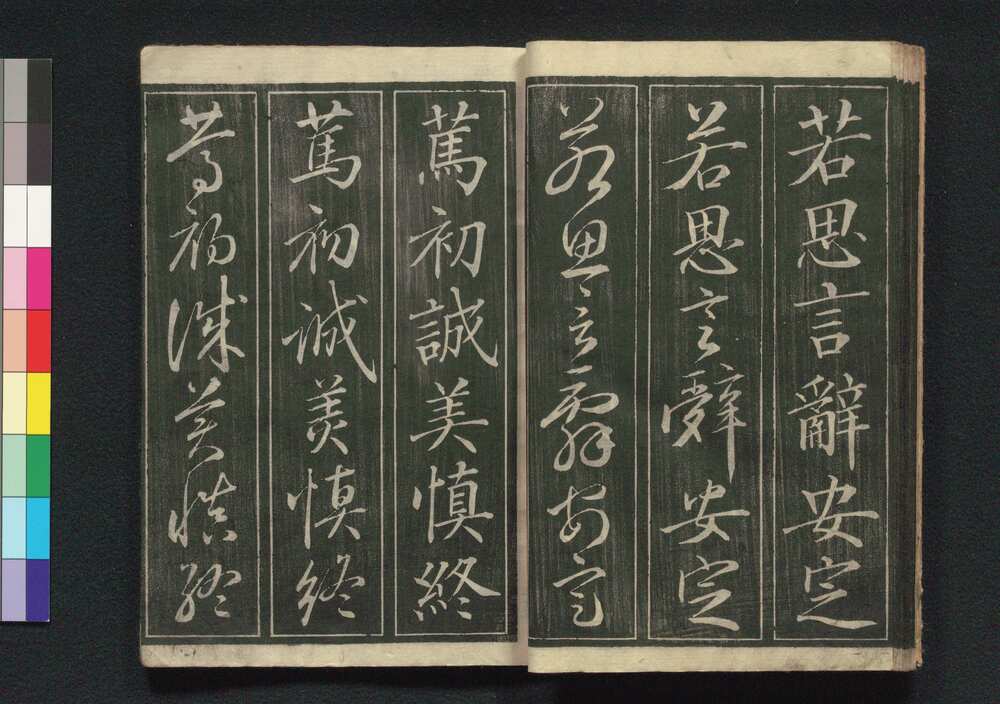 若思言辭安定
若思言辭安定
若思言辭安定
篤初誠美慎終
篤初誠美慎終
篤初誠美慎終